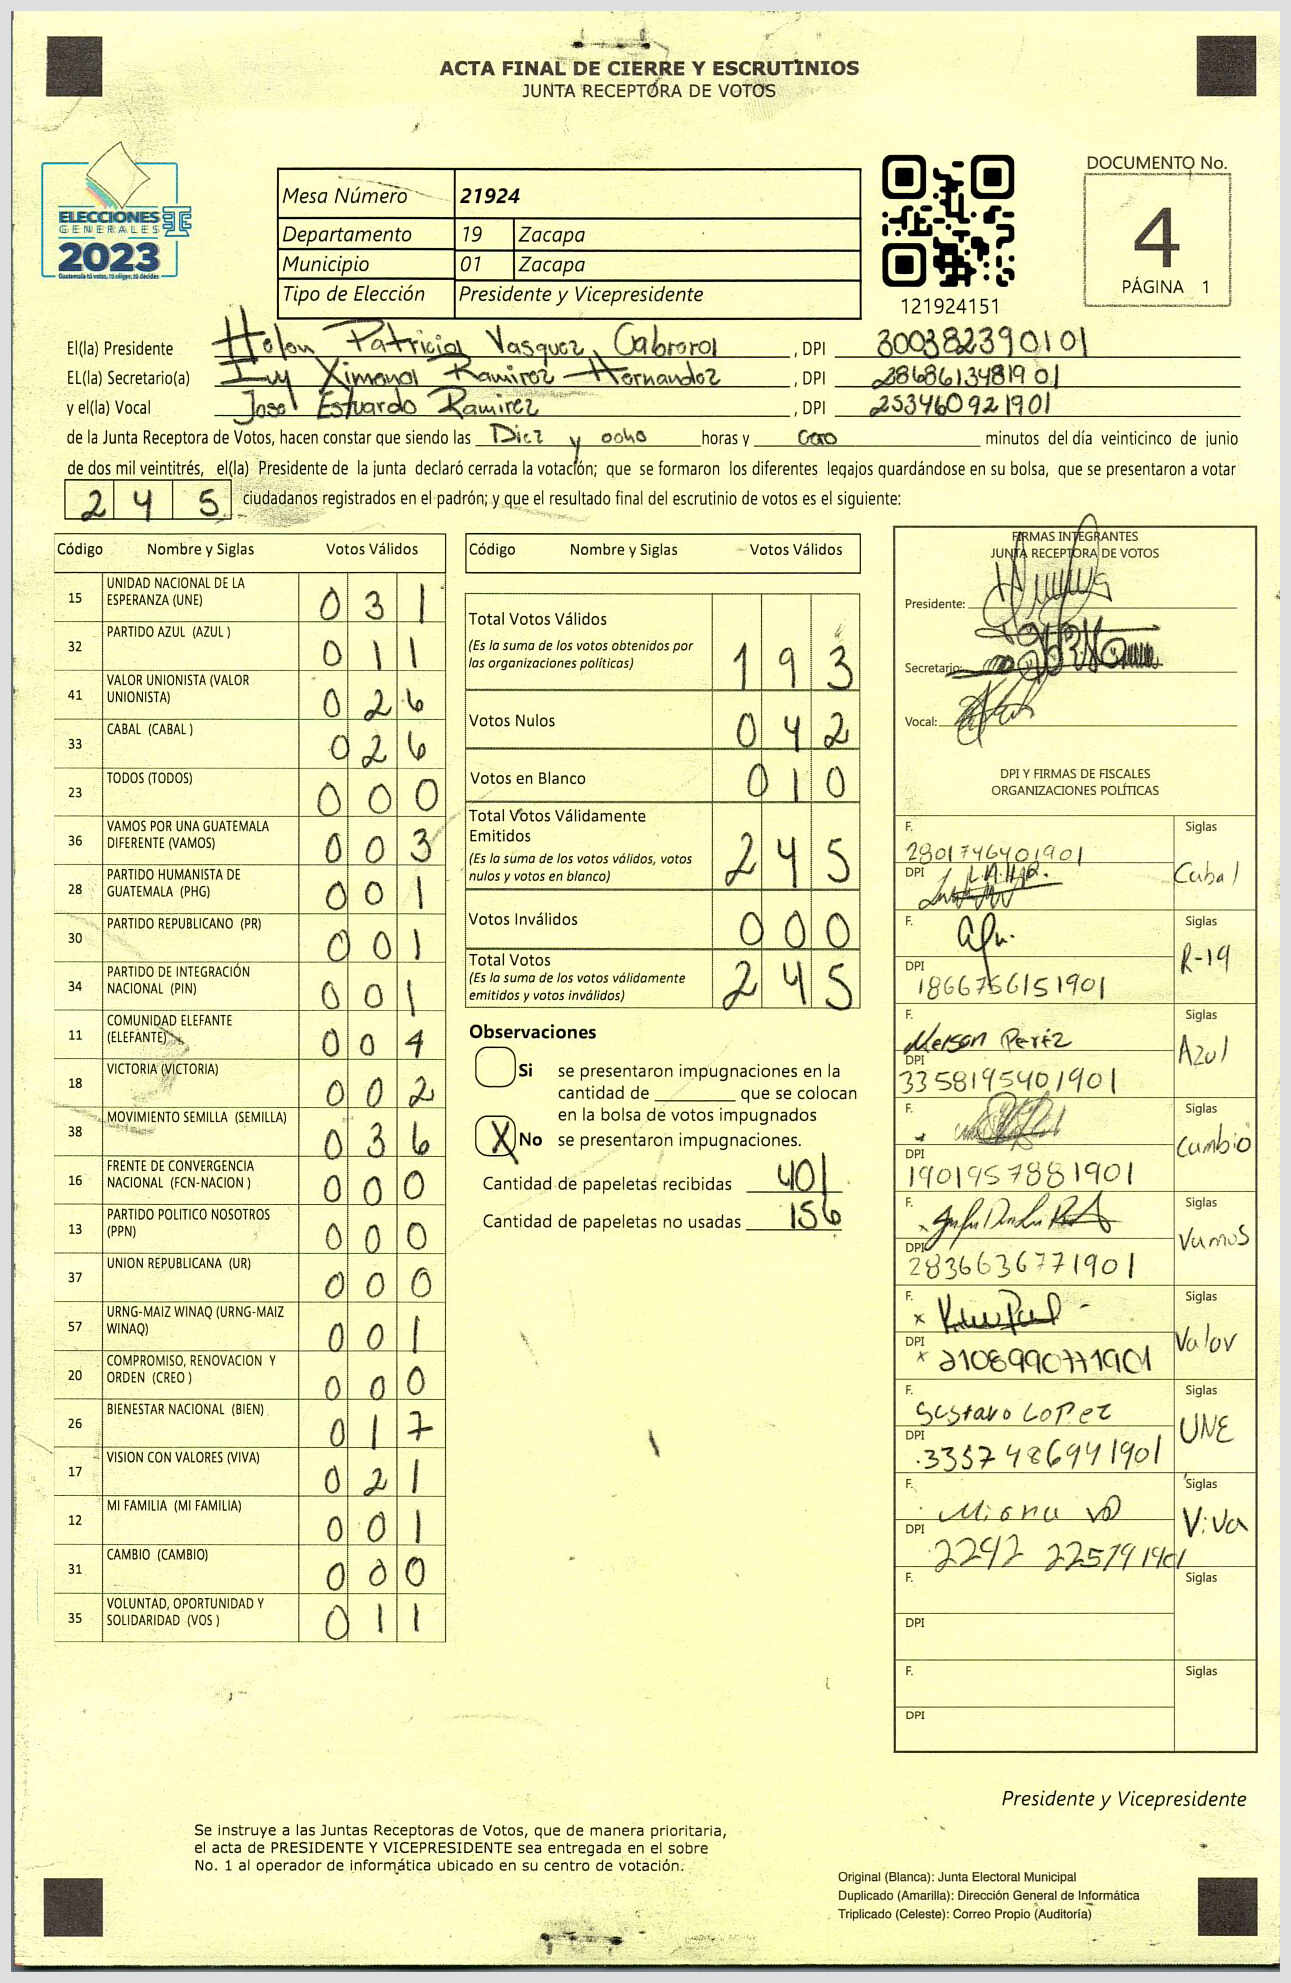 ACTA FINAL DE CIERRE Y ESCRUTINIOS
JUNTA RECEPTORA DE VOTOS
ELECCIONES
GENERALES
2023
Guatemala tú votas, tú eliges, tú decides
Mesa Número 21924
Departamento 19 Zacapa
Municipio 01 Zacapa
Tipo de Elección Presidente y Vicepresidente
121924151
DOCUMENTO No.
4
PÁGINA 1
El(la) Presidente Helen Patricia Vasquez Cabrera , DPI 300382390101
EL(la) Secretario(a) Ivy Ximena Ramirez Hernandez , DPI 2868613481901
y el(la) Vocal José Estuardo Ramirez , DPI 253460921901
de la Junta Receptora de Votos, hacen constar que siendo las Diez y ocho horas y cero minutos del día veinticinco de junio
de dos mil veintitrés, el(la) Presidente de la junta declaró cerrada la votación; que se formaron los diferentes legajos guardándose en su bolsa, que se presentaron a votar
245 ciudadanos registrados en el padrón; y que el resultado final del escrutinio de votos es el siguiente:
Código Nombre y Siglas Votos Válidos
15 UNIDAD NACIONAL DE LA ESPERANZA (UNE) 031
32 PARTIDO AZUL (AZUL ) 011
41 VALOR UNIONISTA (VALOR UNIONISTA) 026
33 CABAL (CABAL ) 026
23 TODOS (TODOS) 000
36 VAMOS POR UNA GUATEMALA DIFERENTE (VAMOS) 003
28 PARTIDO HUMANISTA DE GUATEMALA (PHG) 001
30 PARTIDO REPUBLICANO (PR) 001
34 PARTIDO DE INTEGRACIÓN NACIONAL (PIN) 001
11 COMUNIDAD ELEFANTE (ELEFANTE) 004
18 VICTORIA (VICTORIA) 002
38 MOVIMIENTO SEMILLA (SEMILLA) 036
16 FRENTE DE CONVERGENCIA NACIONAL (FCN-NACION ) 000
13 PARTIDO POLITICO NOSOTROS (PPN) 000
37 UNION REPUBLICANA (UR) 000
57 URNG-MAIZ WINAQ (URNG-MAIZ WINAQ) 001
20 COMPROMISO, RENOVACION Y ORDEN (CREO ) 000
26 BIENESTAR NACIONAL (BIEN) 017
17 VISION CON VALORES (VIVA) 021
12 MI FAMILIA (MI FAMILIA) 001
31 CAMBIO (CAMBIO) 000
35 VOLUNTAD, OPORTUNIDAD Y SOLIDARIDAD (VOS ) 011
Código Nombre y Siglas Votos Válidos
Total Votos Válidos 193
(Es la suma de los votos obtenidos por
las organizaciones políticas)
Votos Nulos 042
Votos en Blanco 010
Total Votos Válidamente
Emitidos 245
(Es la suma de los votos válidos, votos
nulos y votos en blanco)
Votos Inválidos 000
Total Votos 245
(Es la suma de los votos válidamente
emitidos y votos inválidos)
Observaciones
Si se presentaron impugnaciones en la
cantidad de ________ que se colocan
en la bolsa de votos impugnados
X No se presentaron impugnaciones.
Cantidad de papeletas recibidas 401
Cantidad de papeletas no usadas 156
FIRMAS INTEGRANTES
JUNTA RECEPTORA DE VOTOS
Presidente:
Secretario:
Vocal:
DPI Y FIRMAS DE FISCALES
ORGANIZACIONES POLÍTICAS
F. 2801746401901 Siglas
DPI Cabal
F. Siglas
DPI 1866756151901 R-19
F. Nerson Peréz Siglas
DPI 3358195401901 Azul
F. Siglas
DPI 1901957881901 Cambio
F. Siglas
DPI 2836636771901 Vamos
F. Siglas
DPI 2108990771901 Valor
F. Gustavo LoPez Siglas
DPI 3357486941901 UNE
F. Siglas
DPI 2292 225791901 Viva
F. Siglas
DPI
F. Siglas
DPI
Presidente y Vicepresidente
Se instruye a las Juntas Receptoras de Votos, que de manera prioritaria,
el acta de PRESIDENTE Y VICEPRESIDENTE sea entregada en el sobre
No. 1 al operador de informática ubicado en su centro de votación.
Original (Blanca): Junta Electoral Municipal
Duplicado (Amarilla): Dirección General de Informática
Triplicado (Celeste): Correo Propio (Auditoría)